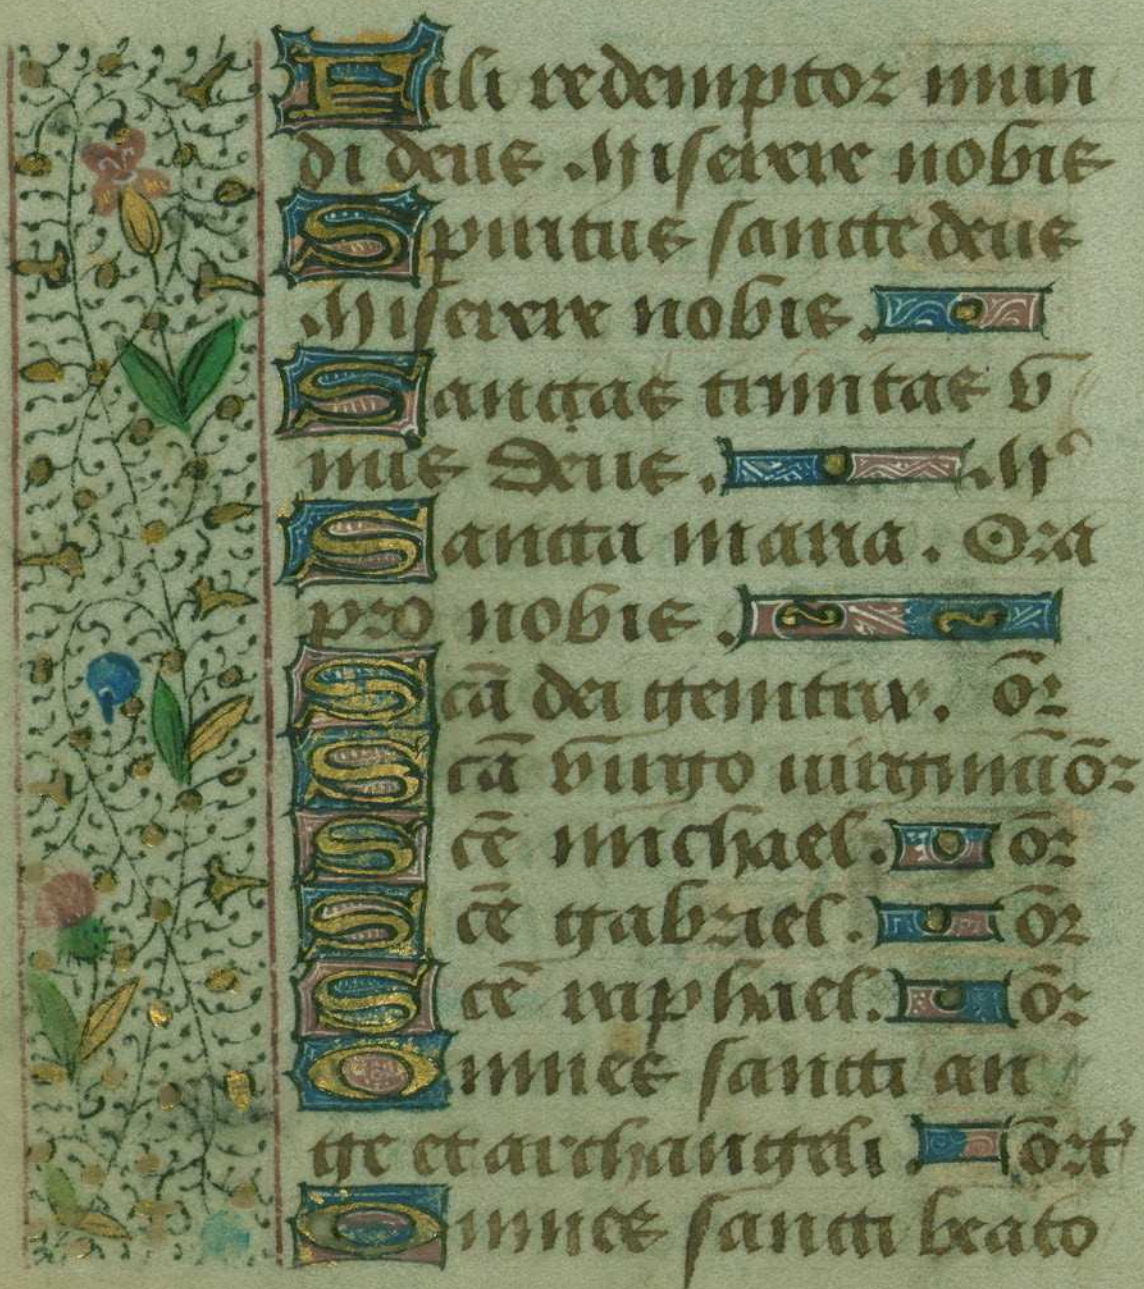 Fili redemptor mun
di deus . Miserere nobis
Spiritus sancte deus
Miserere nobis .
Sanctas trinitas v
nus Deus . . M
Sancta maria . Ora
pro nobis .
Scā dei genitrix . or̄
Scā virgo uirginū or̄
Scē michael . or̄
Scē gabriel . or̄
Scē raphael . or̄
Omnes sancti an
ge et archangeli . ort̄
Omnes sancti beato